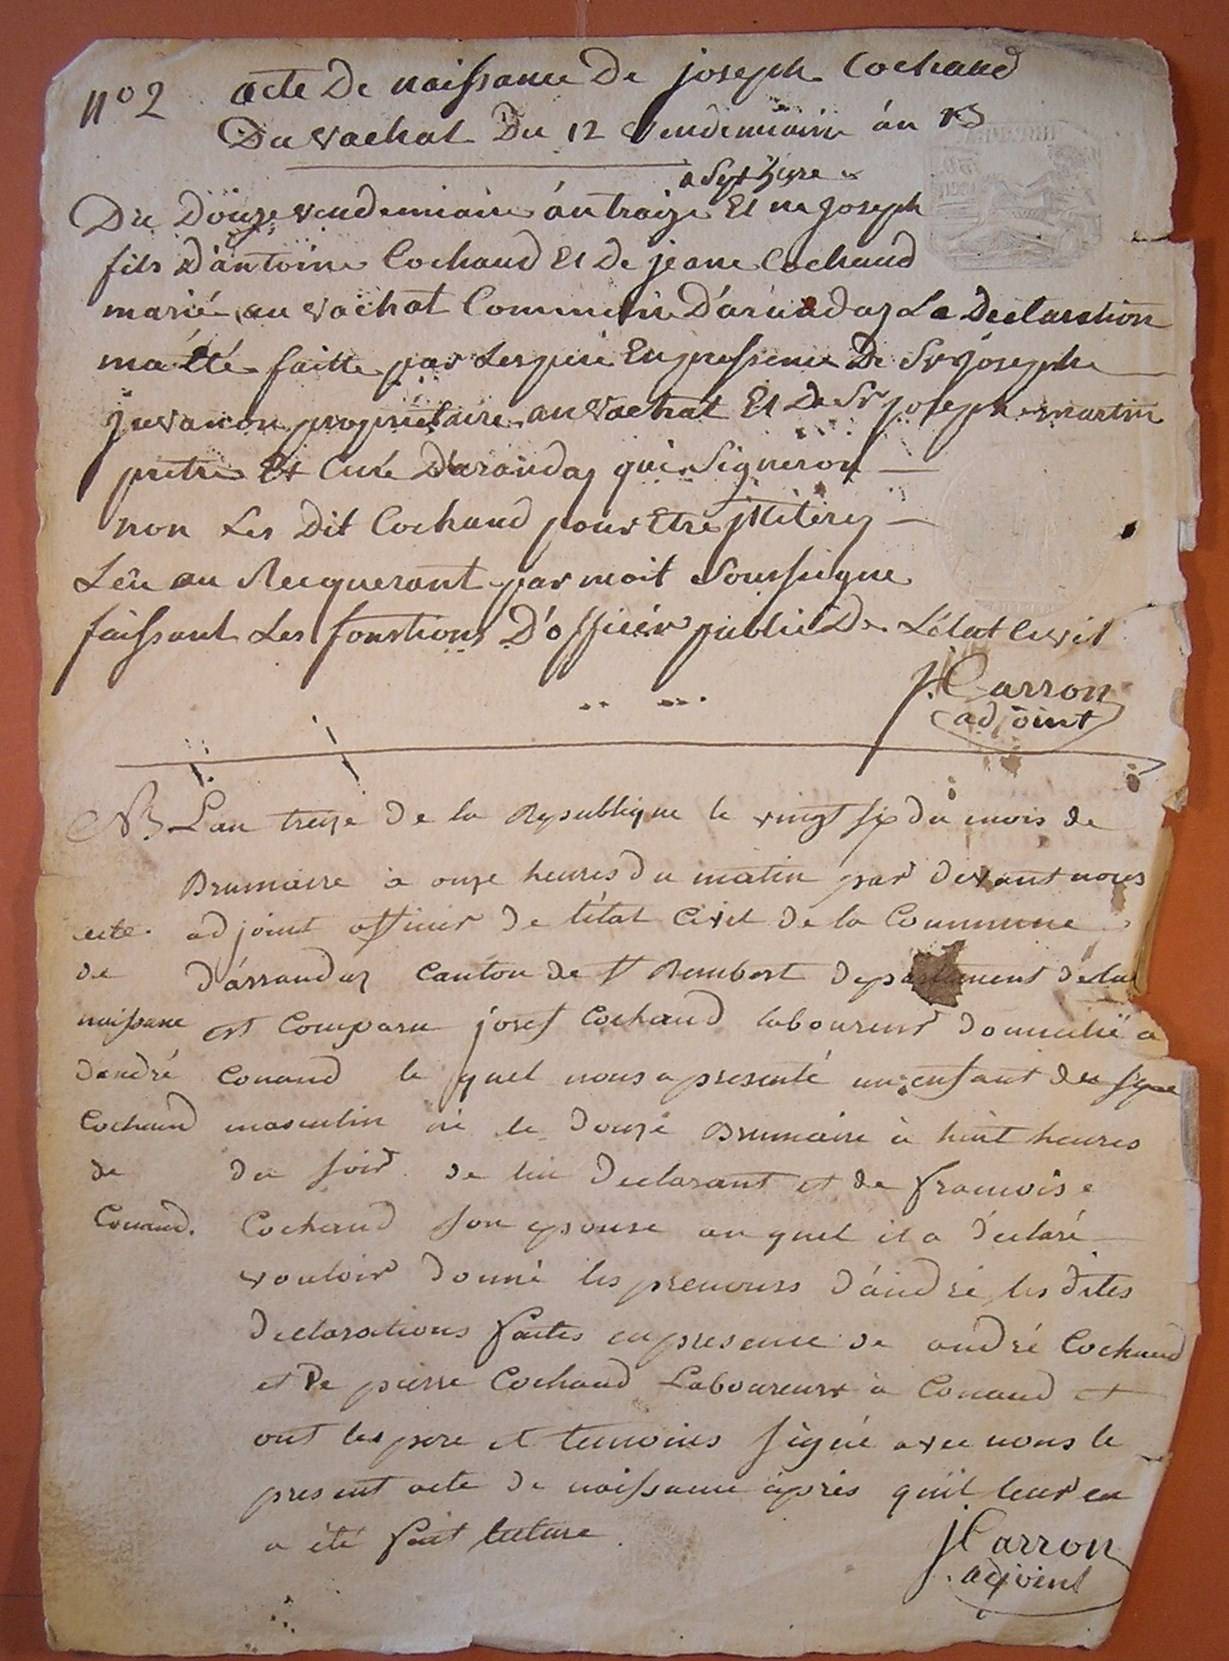 nº 2 acte De naissance De joseph Cochaud
Du vachat Du 12 vendemiaire án 13
a Sept hure
Du Douze vendemiaire án traize Et ne joseph
fils D'antoine Cochaud Et De jeane Cochaud
marié au vachat Commune D'arandas La Declaration
ma été faitte par Les pere En pressence De Sr joseph
juvanon propriétaire au vachat Et De Sr joseph martin
pretre Et Curé D'arandas qui Signeron
non Les Dit Cochaud pour Etre
Leu au Recquerant par moit Soussigne
faissant Les fonstions D'officier public De L'état Civil
J. Carron
adjoint
NB L'an treize de la Republique le vingt six du mois de
Brumaire à onze heures du matin par devant nous
adjoint officier de l'état civil de la Commune
d'arrandas canton de St Rembert departement de l'ain
est comparu josef Cochaud laboureur domicilié a
Conand le quel nous a presenté un enfant du sexe
masculin né le douze Brumaire à huit heures
du soir de lui declarant et de francoise
Cochaud son epouse au quel il a déclaré
vouloir donné les prenoms d'andré les dites
declarations faites en presence de andré Cochaud
et De pierre Cochaud Laboureurs à Conand et
ont les pere et temoins signé avec nous le
present acte de naissance après qu'il leur en
a été fait lecture.
acte
de
naissance
d'andré
Cochaud
de
Conand.
J Carron
adjoint